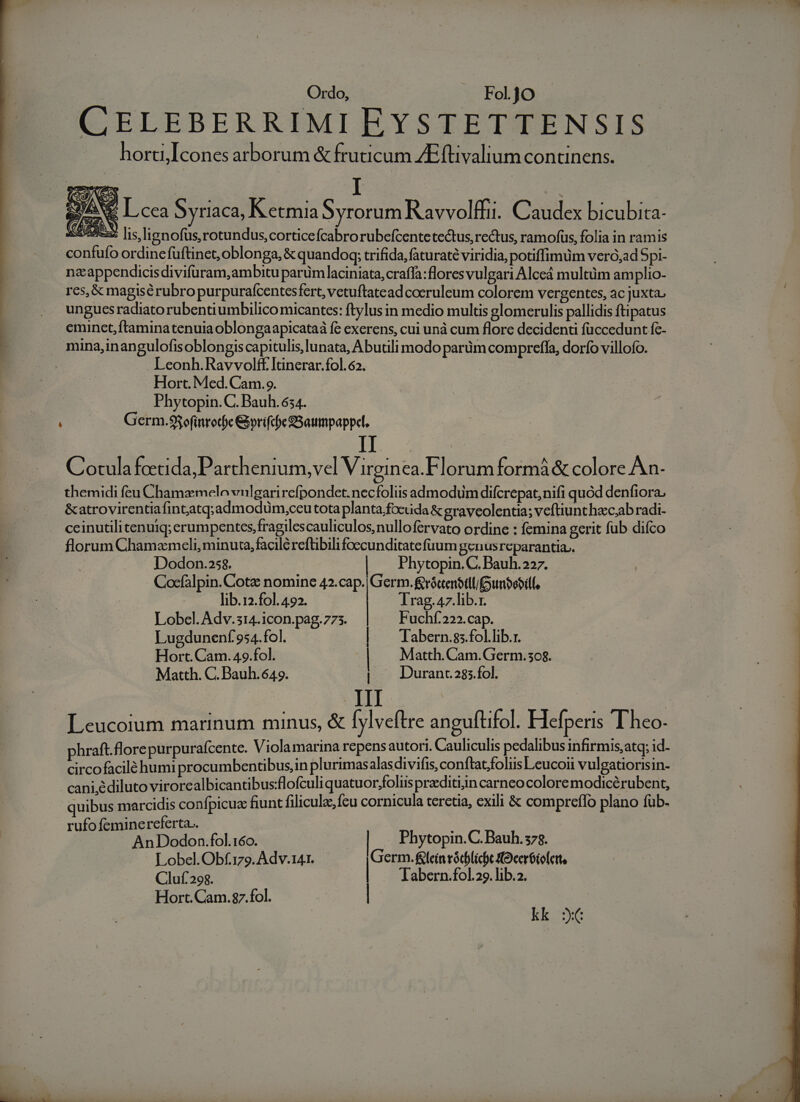 Ordo, Fol. JO
CELEBERRIMI EYSTETTENSIS
horti, Icones arborum & fruticum Æſtivalium continens.
I
ALcea Syriaca, Ketmia Syrorum Ravvolffii. Caudex bicubita-
lis, lignoſus, rotundus, cortice ſcabro rubeſcente tectus, rectus, ramoſus, folia in ramis
confuſo ordine ſuſtinet, oblonga, & quandoq; trifida, ſaturatè viridia, potiſſimùm verò, ad Spi-
næ appendicis diviſuram, ambitu parùm laciniata, craſſa: flores vulgari Alceâ multùm amplio-
res, & magis è rubro purpuraſcentes fert, vetuſtate ad cœruleum colorem vergentes, ac juxta
ungues radiato rubenti umbilico micantes: ſtylus in medio multis glomerulis pallidis ſtipatus
eminet, ſtamina tenuia oblonga apicata à ſe exerens, cui unà cum flore decidenti ſuccedunt ſe-
mina, in anguloſis oblongis capitulis, lunata, Abutili modo parùm compreſſa, dorſo villoſo.
Leonh. Ravvolff. Itinerar. fol. 62.
Hort. Med. Cam. 9.
Phytopin. C. Bauh. 634.
Germ. Roſinrothe Syriſche Baumpappel.
II
Cotula fœtida, Parthenium, vel Virginea. Florum formâ & colore An-
themidi ſeu Chamæmelo vulgari reſpondet. nec foliis admodùm diſcrepat, niſi quòd denſiora
& atrovirentia ſint, atq; admodùm, ceu tota planta, fœtida & graveolentia; veſtiunt hæc, ab radi-
ce inutili tenuiq; erumpentes, fragiles cauliculos, nullo ſervato ordine : ſemina gerit ſub diſco
florum Chamæmeli, minuta, facilè reſtibili fœcunditate ſuum genus reparantia.
Dodon. 258.
Cœſalpin. Cotæ nomine 42. cap.
lib. 12. fol. 492.
Lobel. Adv. 314. icon. pag. 773.
Lugdunenſ. 954. fol.
Hort. Cam. 49. fol.
Matth. C. Bauh. 649.
Phytopin. C. Bauh. 227.
Germ. Kröttendill/Hundsdill.
Trag. 47. lib. 1.
Fuchſ. 222. cap.
Tabern. 85. fol. lib. 1.
Matth. Cam. Germ. 308.
Durant. 283. fol.
III
Leucoium marinum minus, & ſylveſtre anguſtifol. Heſperis Theo-
phraſt. flore purpuraſcente. Viola marina repens autori. Cauliculis pedalibus infirmis, atq; id-
circo facilè humi procumbentibus, in plurimas alas diviſis, conſtat, foliis Leucoii vulgatioris in-
cani, è diluto virore albicantibus: floſculi quatuor, foliis præditi, in carneo colore modicè rubent,
quibus marcidis conſpicuæ fiunt ſiliculæ, ſeu cornicula teretia, exili & compreſſo plano ſub-
rufo ſemine referta.
An Dodon. fol. 160.
Lobel. Obſ. 179. Adv. 141.
Cluſ. 298.
Hort. Cam. 87. fol.
Phytopin. C. Bauh. 378.
Germ. Klein röthlicht Meerviolen.
Tabern. fol. 29. lib. 2.
kk :)(: